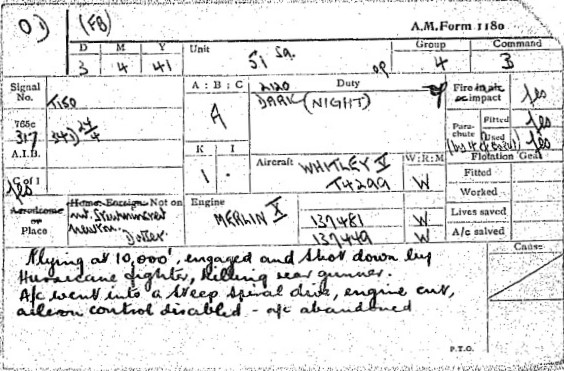 O) (FB)
A.M. Form 1180
D M Y Unit Group Command
3 4 41 51 Sq. 4 3
Signal No. T150
A : B : C 2120 Duty op
A DARK (NIGHT)
Fire in air or impact Yes
765c 317 A.I.B.
Para-chute Fitted Yes
Used Yes
K I
1 .
Aircraft WHITLEY V W:R:M
T4299 W
Flotation Gear
Fitted
Worked
C of I Yes
Aerodrome or Place
Home Foreign Not on
nr. Sturminster
Newton.
Dorset
Engine MERLIN X
137481 W
137449 W
Lives saved
A/c salved
Flying at 10,000', engaged and shot down by
Hurricane fighter, killing rear gunner.
A/c went into a steep spiral dive, engine cut,
aileron control disabled - a/c abandoned
Cause
P.T.O.